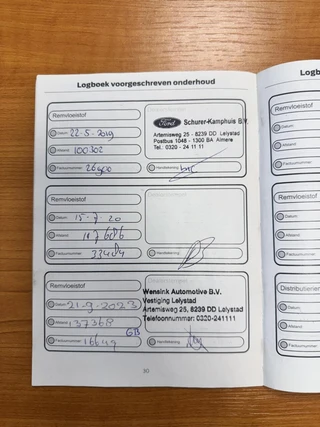 Logboek voorgeschreven onderhoud
Logb
Remvloeistof
Datum: 22-5-2019
Afstand: 100302
Factuurnummer:
Ford Schurer-Kamphuis B.V.
Artemisweg 25 - 8239 DD Lelystad
Postbus 1048 - 1300 BA Almere
Tel.: 0320 - 24 11 11
Handtekening:
Remvloeistof
Datum: 15-7-20
Afstand: 117686
Factuurnummer: 33484
Handtekening:
Remvloeistof
Datum: 21-9-2023
Afstand: 137368
Factuurnummer: 16649
Wensink Automotive B.V.
Vestiging Lelystad
Artemisweg 25, 8239 DD Lelystad
Telefoonnummer: 0320-241111
Handtekening:
30
Remvloeistof
Datum:
Afstand:
Factuurnummer:
Remvloeistof
Datum:
Afstand:
Factuurnummer:
Distributierie
Datum:
Afstand:
Factuurnummer: